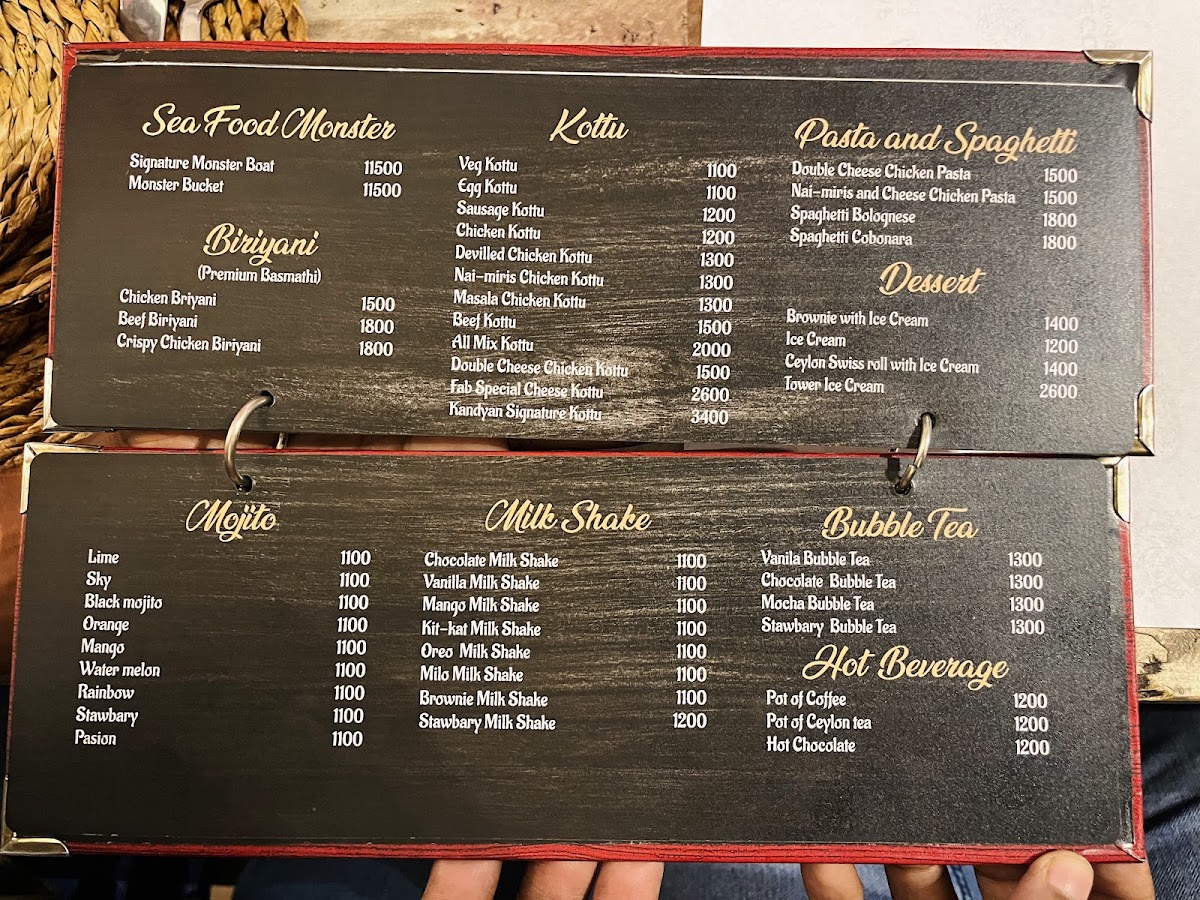 Sea Food Monster
Signature Monster Boat 11500
Monster Bucket 11500
Biriyani
(Premium Basmathi)
Chicken Briyani 1500
Beef Biriyani 1800
Crispy Chicken Biriyani 1800
Kottu
Veg Kottu 1100
Egg Kottu 1100
Sausage Kottu 1200
Chicken Kottu 1200
Devilled Chicken Kottu 1300
Nai-miris Chicken Kottu 1300
Masala Chicken Kottu 1300
Beef Kottu 1500
All Mix Kottu 2000
Double Cheese Chicken Kottu 1500
Fab Special Cheese Kottu 2600
Kandyan Signature Kottu 3400
Pasta and Spaghetti
Double Cheese Chicken Pasta 1500
Nai-miris and Cheese Chicken Pasta 1500
Spaghetti Bolognese 1800
Spaghetti Cobonara 1800
Dessert
Brownie with Ice Cream 1400
Ice Cream 1200
Ceylon Swiss roll with Ice Cream 1400
Tower Ice Cream 2600
Mojito
Lime 1100
Sky 1100
Black mojito 1100
Orange 1100
Mango 1100
Water melon 1100
Rainbow 1100
Stawbary 1100
Pasion 1100
Milk Shake
Chocolate Milk Shake 1100
Vanilla Milk Shake 1100
Mango Milk Shake 1100
Kit-kat Milk Shake 1100
Oreo Milk Shake 1100
Milo Milk Shake 1100
Brownie Milk Shake 1100
Stawbary Milk Shake 1200
Bubble Tea
Vanila Bubble Tea 1300
Chocolate Bubble Tea 1300
Mocha Bubble Tea 1300
Stawbary Bubble Tea 1300
Hot Beverage
Pot of Coffee 1200
Pot of Ceylon tea 1200
Hot Chocolate 1200